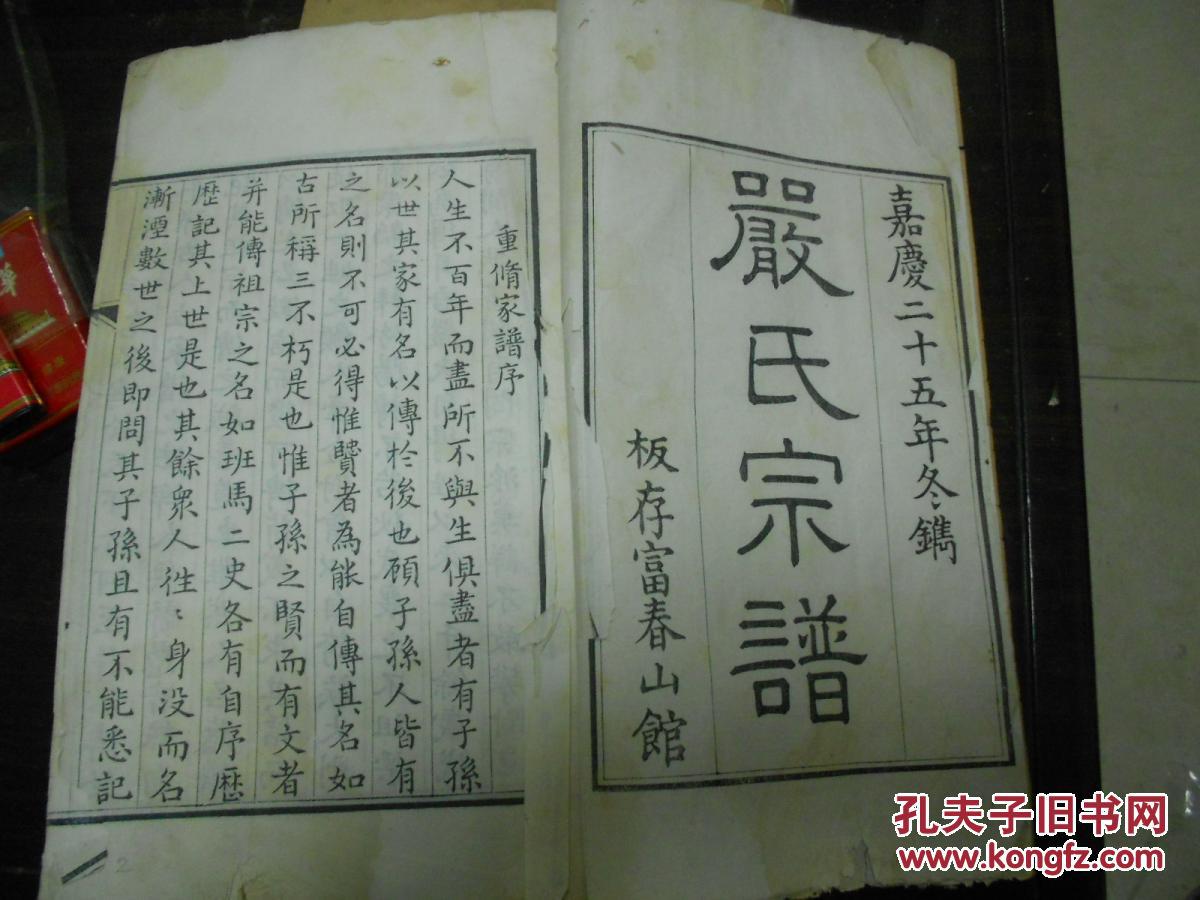 嘉慶二十五年冬鐫
嚴氏宗譜
板存富春山館
重脩家譜序
人生不百年而盡所不與生俱盡者有子孫
以世其家有名以傳於後也顧子孫人皆有
之名則不可必得惟賢者為能自傳其名如
古所稱三不朽是也惟子孫之賢而有文者
并能傳祖宗之名如班馬二史各有自序歷
歷記其上世是也其餘眾人徃〻身没而名
漸湮數世之後即問其子孫且有不能悉記
2
孔夫子旧书网
www.kongfz.com